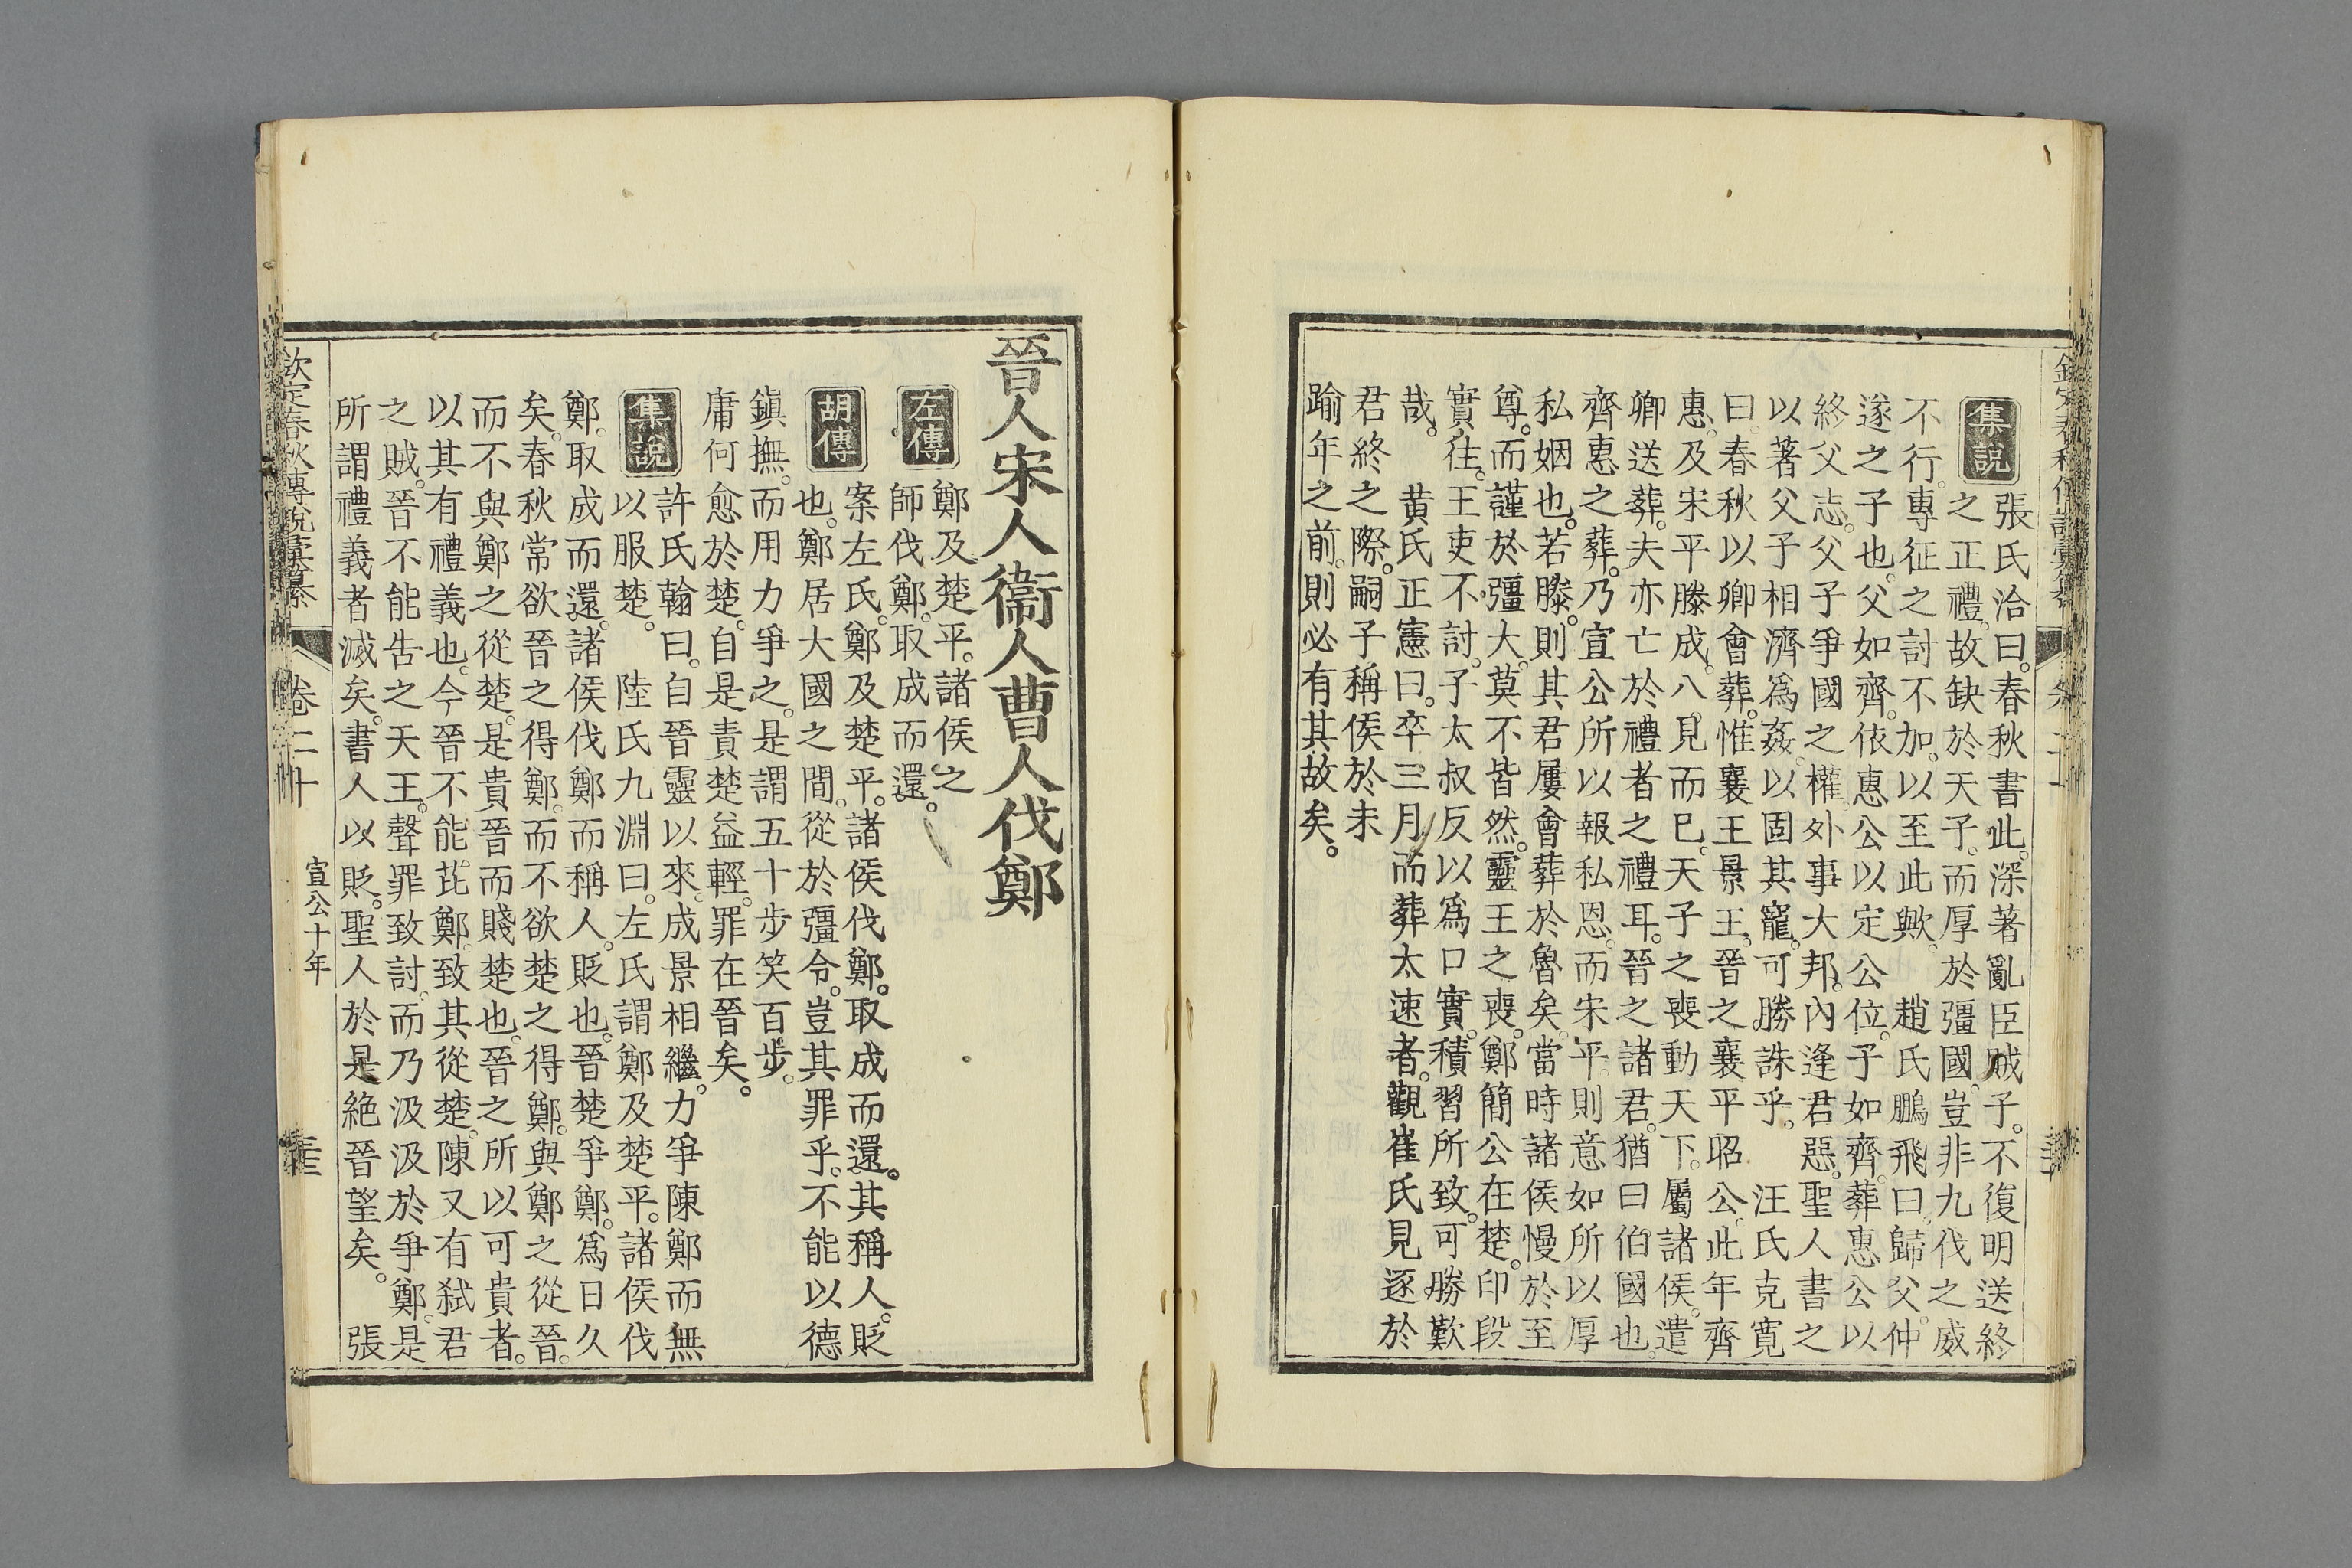 集說
張氏洽曰。春秋書此。深著亂臣賊子。不復明送終
之正禮。故缺於天子。而厚於彊國。豈非九伐之威
不行。專征之討不加。以至此歟。趙氏鵬飛曰。歸父。仲
遂之子也。父如齊。依惠公以定公位。子如齊。葬惠公以
終父志。父子爭國之權。外事大邦。內逢君惡。聖人書之
以著父子相濟爲姦。以固其寵。可勝誅乎。汪氏克寬
曰。春秋以卿會葬。惟襄王景王。晉之襄平昭公。此年齊
惠。及宋平滕成。八見而巳。天子之喪動天下。屬諸侯。遣
卿送葬。夫亦亡於禮者之禮耳。晉之諸君。猶曰伯國也。
齊惠之葬。乃宣公所以報私恩。而宋平則意如所以厚
私姻也。若滕。則其君屢會葬於魯矣。當時諸侯慢於至
尊。而謹於彊大。莫不皆然。靈王之喪。鄭簡公在楚。印段
實往。王吏不討。子太叔反以爲口實。積習所致。可勝歎
哉。黄氏正憲曰。卒三月而葬太速者。觀崔氏見逐於
君終之際。嗣子稱侯於未
踰年之前。則必有其故矣。
晉人宋人衞人曹人伐鄭
左傳
鄭及楚平。諸侯之
師伐鄭。取成而還。
胡傳
案左氏。鄭及楚平。諸侯伐鄭。取成而還。其稱人。貶
也。鄭居大國之間。從於彊令。豈其罪乎。不能以德
鎭撫。而用力爭之。是謂五十步笑百步。
庸何愈於楚。自是責楚益輕。罪在晉矣。
集說
許氏翰曰。自晉靈以來。成景相繼。力爭陳鄭而無
以服楚。陸氏九淵曰。左氏謂鄭及楚平。諸侯伐
鄭。取成而還。諸侯伐鄭而稱人。貶也。晉楚爭鄭。爲日久
矣。春秋常欲晉之得鄭。而不欲楚之得鄭。與鄭之從晉。
而不與鄭之從楚。是貴晉而賤楚也。晉之所以可貴者。
以其有禮義也。今晉不能芘鄭。致其從楚。陳又有弒君
之賊。晉不能告之天王。聲罪致討。而乃汲汲於爭鄭。是
所謂禮義者滅矣。書人以貶。聖人於是絕晉望矣。張
欽定春秋傳說彙纂 卷二十 宣公十年